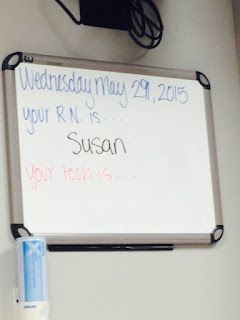 Wednesday May 29, 2015
your R.N. is...
Susan
your tech is...